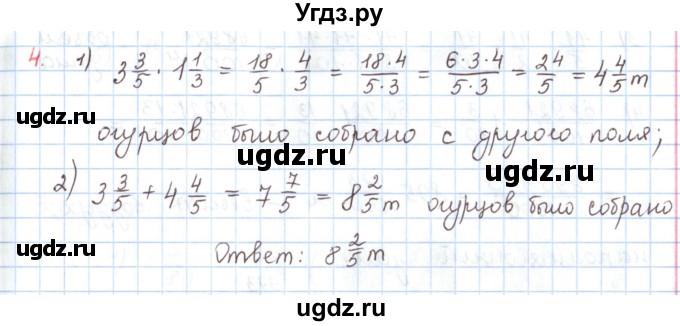 Угдз.ру
4. 1) 3 3/5 · 1 1/3 = 18/5 · 4/3 = 18·4/5·3 = 6·3·4/5·3 = 24/5 = 4 4/5 т
огурцов было собрано с другого поля;
ugdz.ru ugdz.ru ugdz.ru
2) 3 3/5 + 4 4/5 = 7 7/5 = 8 2/5 т огурцов было собрано
ugdz.ru ugdz.ru ugdz.ru
Ответ: 8 2/5 т
©ugdz.ru